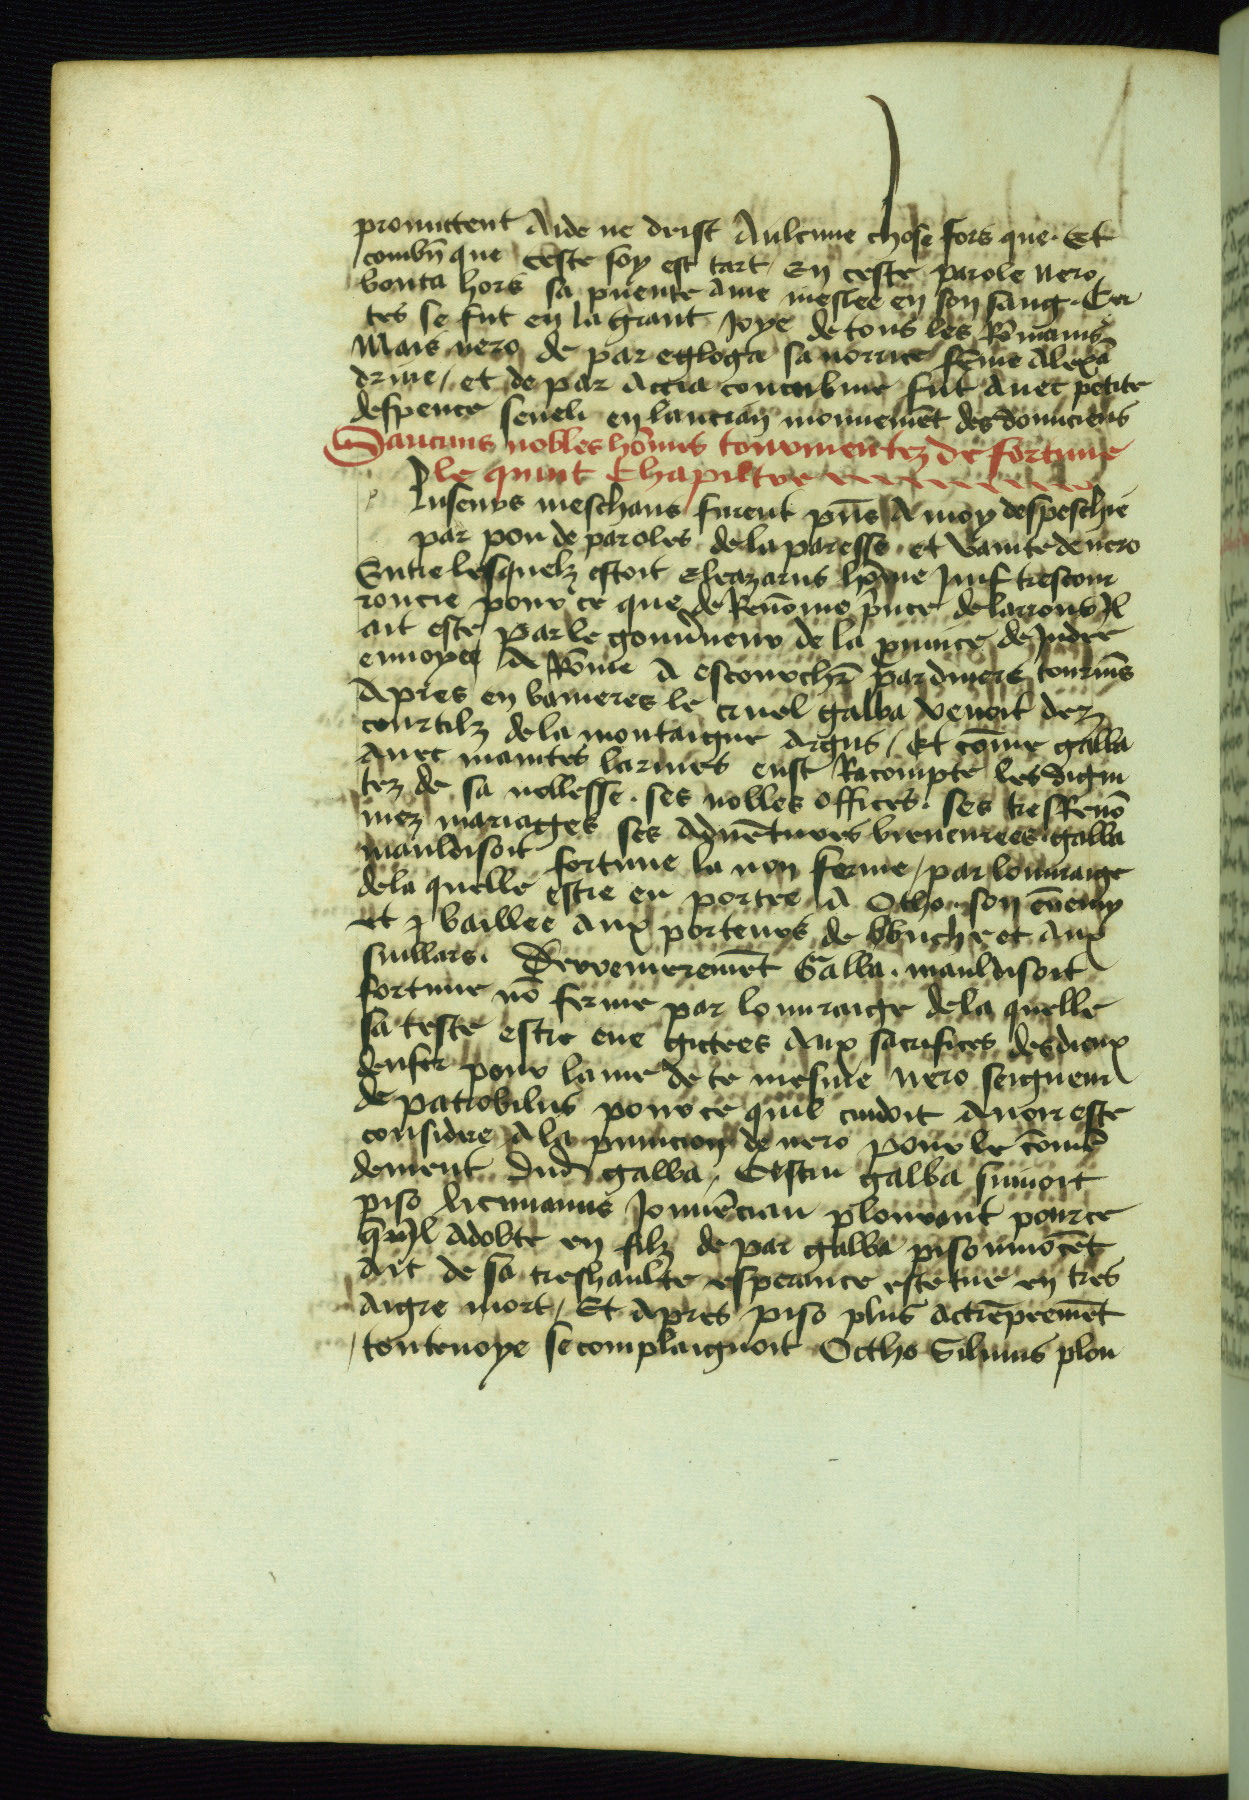 promittent Aide ne deist Aulcune chose fors que. Et
combn̄ que ceste foy est tart / En ceste parole Nero
bouta hors sa puente Ame meslee en son sang. Cer
tes se fut en la grant Joye de tous les Rōmains
Mais nero de par egloga sa norrice fēme Alexā
drine / et de par Accia concubine fut Avec petite
despence seveli en lancian monnemēt des domiciens
Daucuns nobles hōmes tourmentez de fortune
le quint Chapiltre
Plusenrs meschans furent pn̄s A moy despeschie
par pou de paroles de la paresse et vanite de nero
Entre lesquelz estoit Eleazarus hōme Juif trescour
roucie pour ce que de Renōme prince de larrons Jl
ait este par le gouv̄neur de la province de Judee
envoyee A Rōme A escourchr̄ par divers tourmēs
Apres en banieres le cruel galba venoit dez
courtilz de la montaigne Argus / Et cōme galba
Avec maintes larmes eust Racompte les digni
tez de sa nobllesse. ses nobles offices. ses tres Renō
mez mariagges ses Advētures bieneurees. galba
mauldisoit fortune la non ferme / par louvraige
de la quelle estre en portee A Otho son ēnemy
et baillee Aux porteurs de buche et Aux
suillars. Derrenieremēt Galba. mauldisoit
fortune nō ferme par louvraige de la quelle
sa teste estre eue gictees Aux sacrifices des dieux
denfer pour lame de ce mesme Nero seigneur
de patrobilus pour ce quil cuidoit Avoir este
considre A la punicion de nero pour le cōmā
dement dud galba. Cestui galba suivoit
piso licinianus Jouvēcian plourant pource
quil Adopte en filz de par galba piso innocēt
Ait de sa treshaulte esperance este tue en tres
Aigre mort / Et Apres piso plus Actrēpreemēt
toutevoye se complaignoit Octho Silvius plou